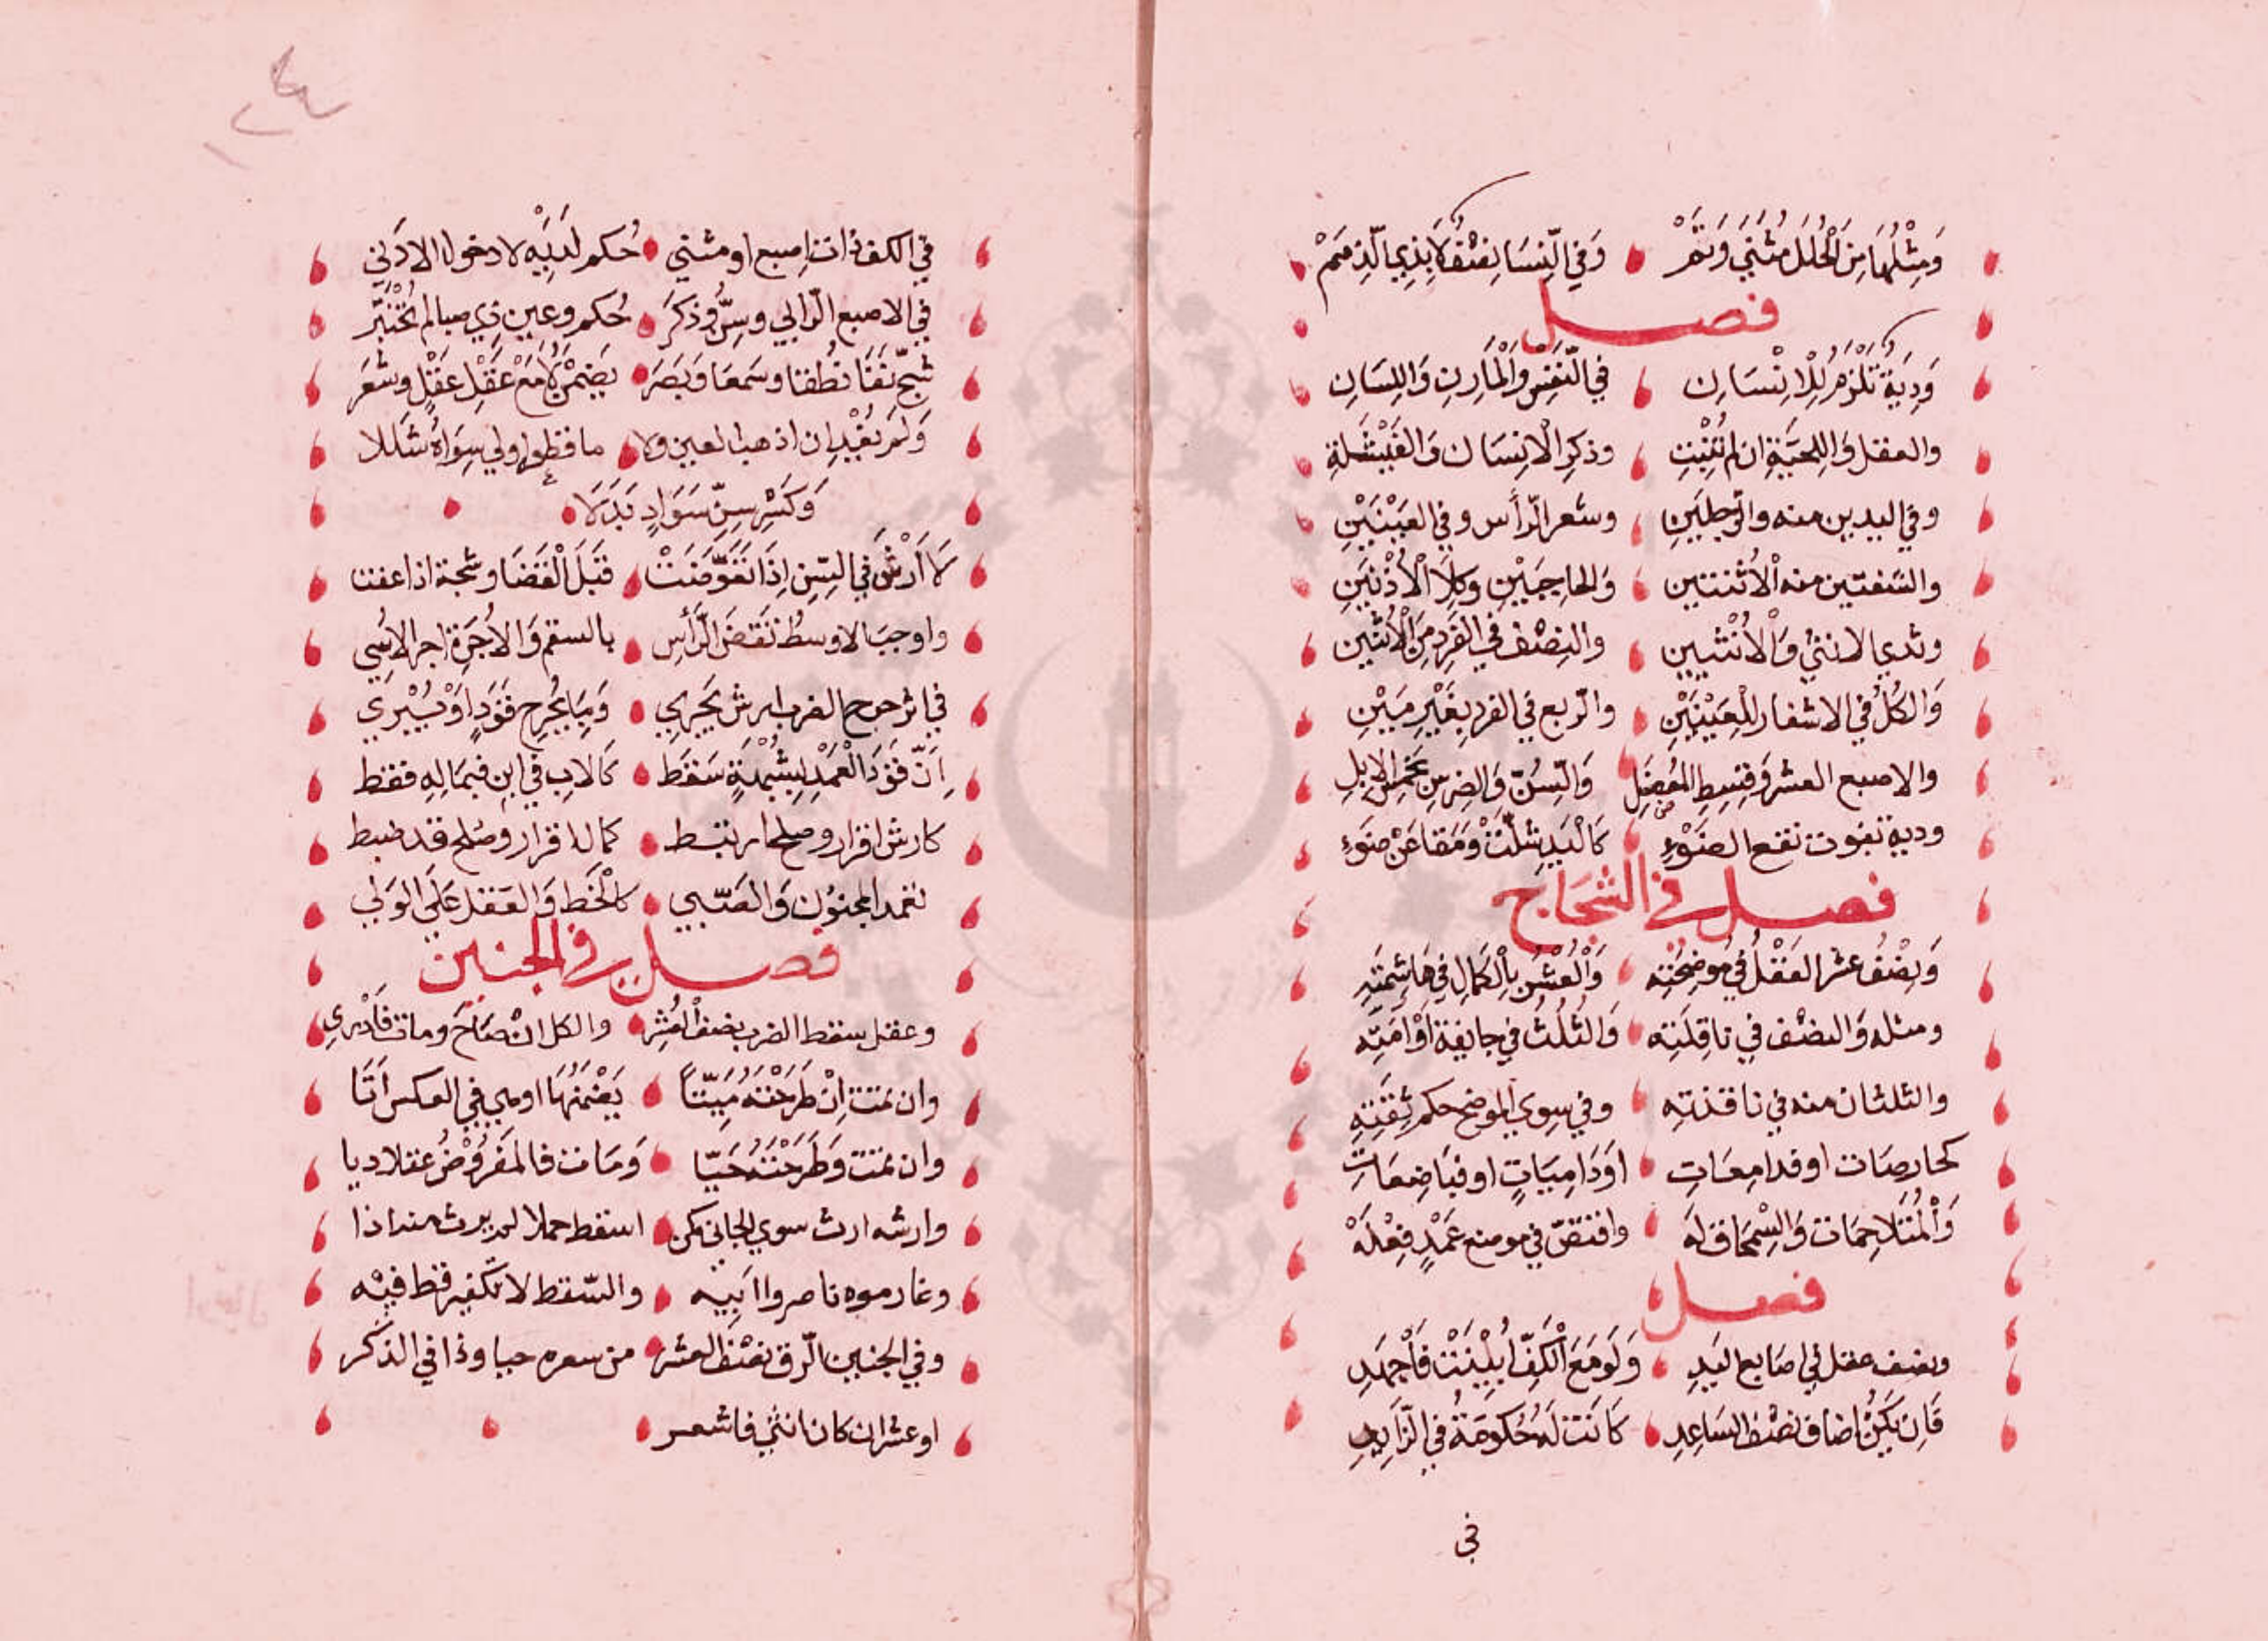 وَمِثْلُهَا مِنَ الْحُلَلِ مُثَنًى وَتَمّْ وَفِي النِّسَا نِصْفٌ لَا بِذِي الَّذِمَمْ
فصل
وَدِيَةٌ تَلْزَمُ لِلْاِنْسَانِ فِي النَّفْسِ وَالْمَارِنِ وَاللِّسَانِ
والعقل وَاللِّحيَةِ ان لم تَنْبُتِ وذكرِ الْانِسَان وَالفَيْشَلَةِ
وفي اليدين منه والرّجلَينِ وشعر الرّأس وفي العَيْنَيْنِ
والشفتين منه الْاُثنتين وَالحاجِبَيْنِ وكِلَا الْاُذْنَينِ
وثدي الانثي وَالْاُنْثيين والنِصْف في الفَردِ مِنَ الْاُثنين
وَالكُلُّ في الاشفار لِلْعَيْنَيْنِ والرّبع في الفردِ بِغَيْرِ مَيْنِ
والاصبع العشر وَقِسِطِ المُفصَلِ وَالسِّنّ وَالضِرسِ بخمس الابلِ
ودية تفويت نفع العضْوِ كَالْيَدِ شلّتْ وَمَقا عَنْ ضَوءِ
فصل في الشجَاج
وَنِصْفُ عشر العَقْلُ في مُوضِحَتِه وَالْعُشْرُ بِالْكَمَالِ فِي هَاشِمَتِهِ
ومثله وَالنصْف في ناقِلَتِه وَالثُلُثُ في جايفة اَوْ اَمَّتِه
والثلثان منه في نافذته وفي سِوي الموضح حكم ثِقَتِهِ
كحارصَات او فدامعَاتِ اوَدَامِيَاتٍ او فبَاضِعَاتِ
وَالْمُتَلَاحِمَات وَالسِّمحَاق لَه واقتصّ في موضع عَمْدٍ فِعْلَهْ
فصل
ونصف عقل في اصَابع اليَدِ وَلَو مَعَ الْكَفِّ اُبِيْنَتْ فَاجْهَدِ
فَاِن يَكُنْ اضَاف نصْفَ السَاعِدِ كَانَتْ لَهُ حُكومَةٌ في الزّايدِ
في
في الكف ذات اِصبع او مثني حُكم لديْهِ لا دخول الادَني
في الاصبع الزّالي وسِنٌّ وذكَرَ حُكم وعين ذي صبا لم تُخْتَبَر
شجّ نفَتَا نُطقا وسَمعَا وَبَصَرَ يَضمْنُهَا مَعْ عَقْلِ عَقْلٍ وشعَرَ
وَلَم يُفِدِ ان اذهبا لعين ولا ما قطعوا ولي سِوَاهُ شَلَلا
وَكسْرِ سِنٍّ سَوَادٍ بَدَلَا
لَا اَرْشَ في السِّنِ اِذَا تَعَوَّضَتْ قَبَلَ الْقَضَا وشجة اذا عفت
واوجبَ الاوسطُ نَقضَ الرَّأسِ بالسقم وَالاُجرَةِ اجر الاُسِي
في اثر جرح الضرب ارش يَجري وَمَا بجُرحٍ قَوَدٍ اَوْ يُبْرِي
اِنّ قَوَدَ الْعَمْدِ بِشُبْهَةٍ سَقَط كَالابِ في ابن فبمَالِهِ فقط
كارش اقرار وصلح ارتبط كمال اقرار وصُلح قد ضبط
تعمد المجنُون وَالصَّبي كالْخَطَ وَالعَقل عَلَى الوَلي
فصل في الجنين
وعقل سقط الضرب نصفُ العُشْر والكل انْ صَاحَ ومات فَادْرِي
وان تمت اِنْ طَرَحَتْهُ مَيِّتًا يَضْمَنُهَا او هي في العكس اَتَا
وان تمت وَطَرَحَتْهُ حَيّا وَمَات فالمَفرُوضُ عقلا ديا
وارشه ارث سوي الجاني كمن اسقط حملا لم يرث منه اذا
وغار موه ناصروا اَبيه والسّقط لا تكفير قط فيْه
وفي الجنين الرّق نصْفُ العشر من سعره حيا وذا في الذكر
او عشر ان كان انثي فاشعر